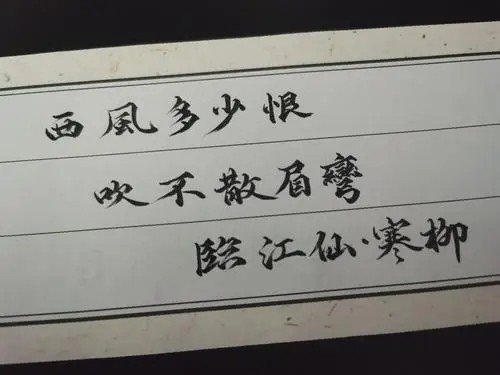 西風多少恨
吹不散眉彎
臨江仙·寒柳